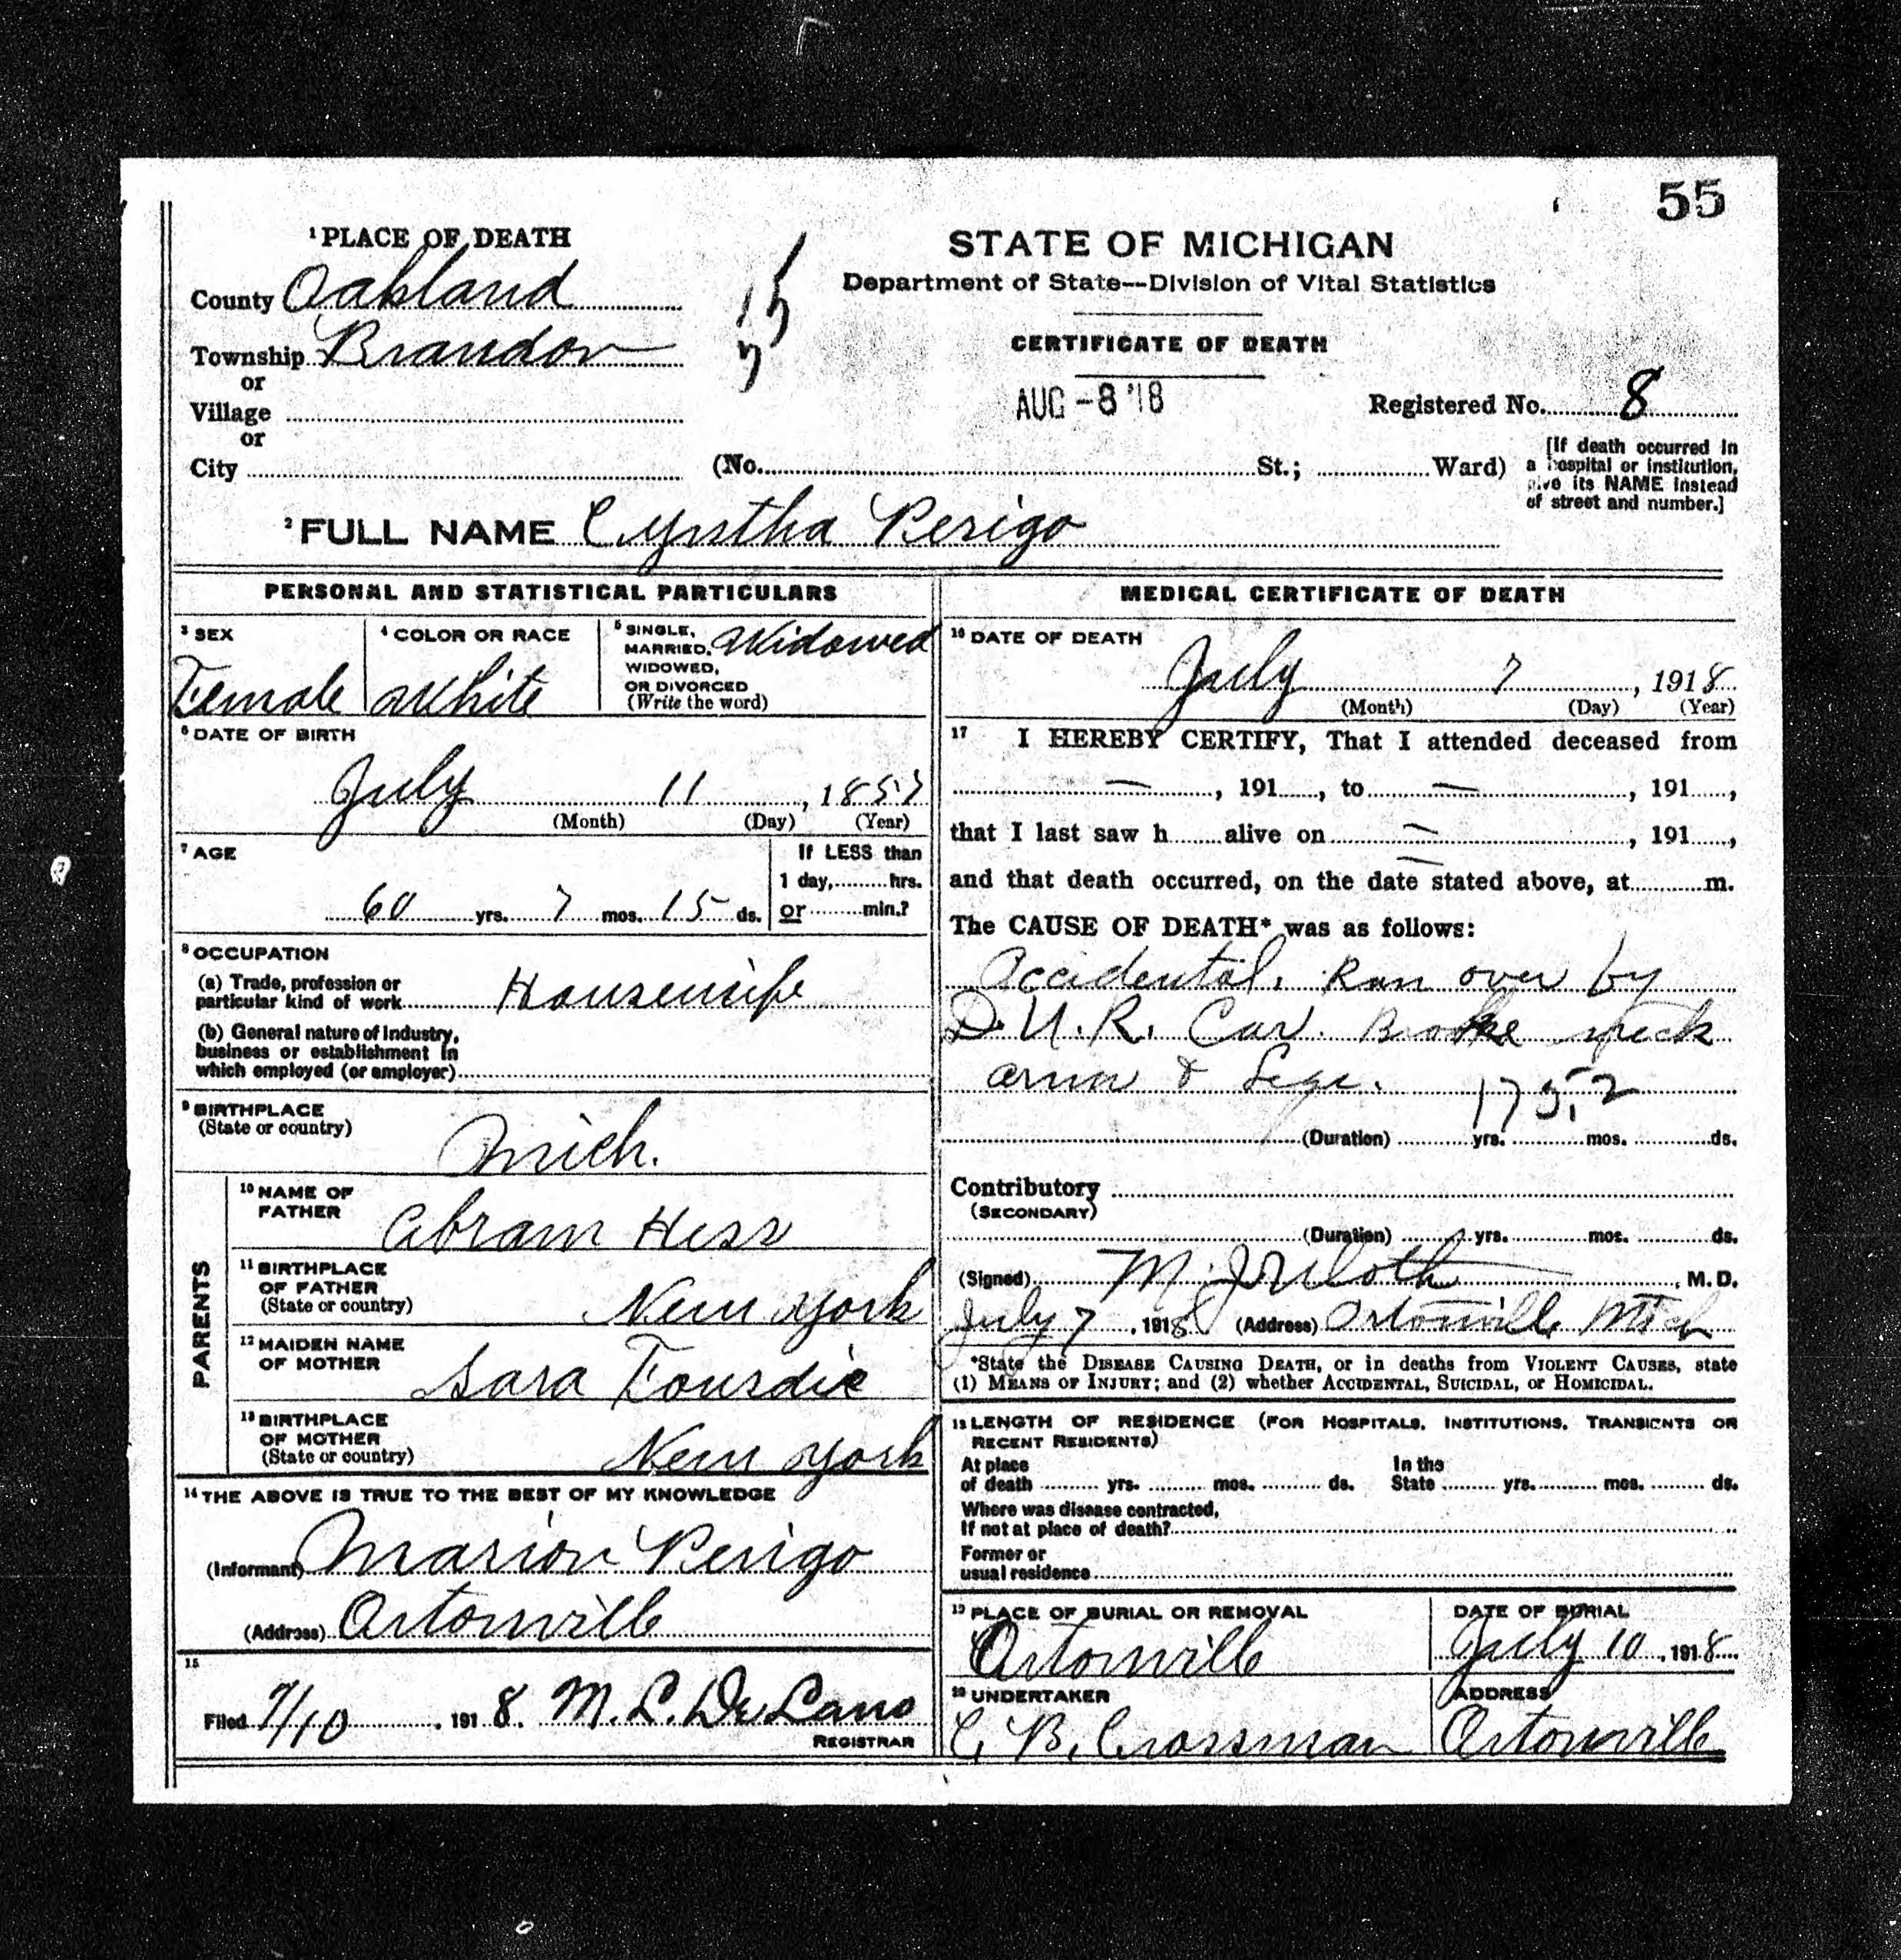 55
¹PLACE OF DEATH
STATE OF MICHIGAN
Department of State—Division of Vital Statistics
CERTIFICATE OF DEATH
County Oakland
Township Brandon
or
Village
or
City
AUG -8 '18
Registered No. 8
(No. St.; Ward)
[If death occurred in
a hospital or institution,
give its NAME instead
of street and number.]
²FULL NAME Cyntha Perigo
PERSONAL AND STATISTICAL PARTICULARS
³ SEX
Female
⁴ COLOR OR RACE
White
⁵ SINGLE,
MARRIED,
WIDOWED,
OR DIVORCED
(Write the word)
Widowed
⁶ DATE OF BIRTH
July 11, 1857
(Month) (Day) (Year)
⁷ AGE
60 yrs. 7 mos. 15 ds.
If LESS than
1 day, hrs.
or min.?
⁸ OCCUPATION
(a) Trade, profession or
particular kind of work Housewife
(b) General nature of industry,
business or establishment in
which employed (or employer)
⁹ BIRTHPLACE
(State or country)
Mich.
PARENTS
¹⁰ NAME OF
FATHER
Abram Hess
¹¹ BIRTHPLACE
OF FATHER
(State or country)
New York
¹² MAIDEN NAME
OF MOTHER
Sara Fourdie
¹³ BIRTHPLACE
OF MOTHER
(State or country)
New York
¹⁴ THE ABOVE IS TRUE TO THE BEST OF MY KNOWLEDGE
(Informant) Marion Perigo
(Address) Ortonville
¹⁵
Filed 7/10, 1918. M. L. De Lano
REGISTRAR
MEDICAL CERTIFICATE OF DEATH
¹⁶ DATE OF DEATH
July 7, 1918
(Month) (Day) (Year)
¹⁷ I HEREBY CERTIFY, That I attended deceased from
—, 191 , to —, 191 ,
that I last saw h alive on —, 191 ,
and that death occurred, on the date stated above, at m.
The CAUSE OF DEATH* was as follows:
Accidental. Ran over by
D.U.R. Car. Broke neck
arm & Legs. 175.2
(Duration) yrs. mos. ds.
Contributory
(SECONDARY)
(Duration) yrs. mos. ds.
(Signed) M. , M. D.
July 7, 1918 (Address) Ortonville Mich
*State the DISEASE CAUSING DEATH, or in deaths from VIOLENT CAUSES, state
(1) MEANS OF INJURY; and (2) whether ACCIDENTAL, SUICIDAL, or HOMICIDAL.
¹⁸ LENGTH OF RESIDENCE (FOR HOSPITALS, INSTITUTIONS, TRANSIENTS OR
RECENT RESIDENTS)
At place
of death yrs. mos. ds.
In the
State yrs. mos. ds.
Where was disease contracted,
If not at place of death?
Former or
usual residence
¹⁹ PLACE OF BURIAL OR REMOVAL
Ortonville
DATE OF BURIAL
July 10, 1918
²⁰ UNDERTAKER
C. B. Crossman
ADDRESS
Ortonville